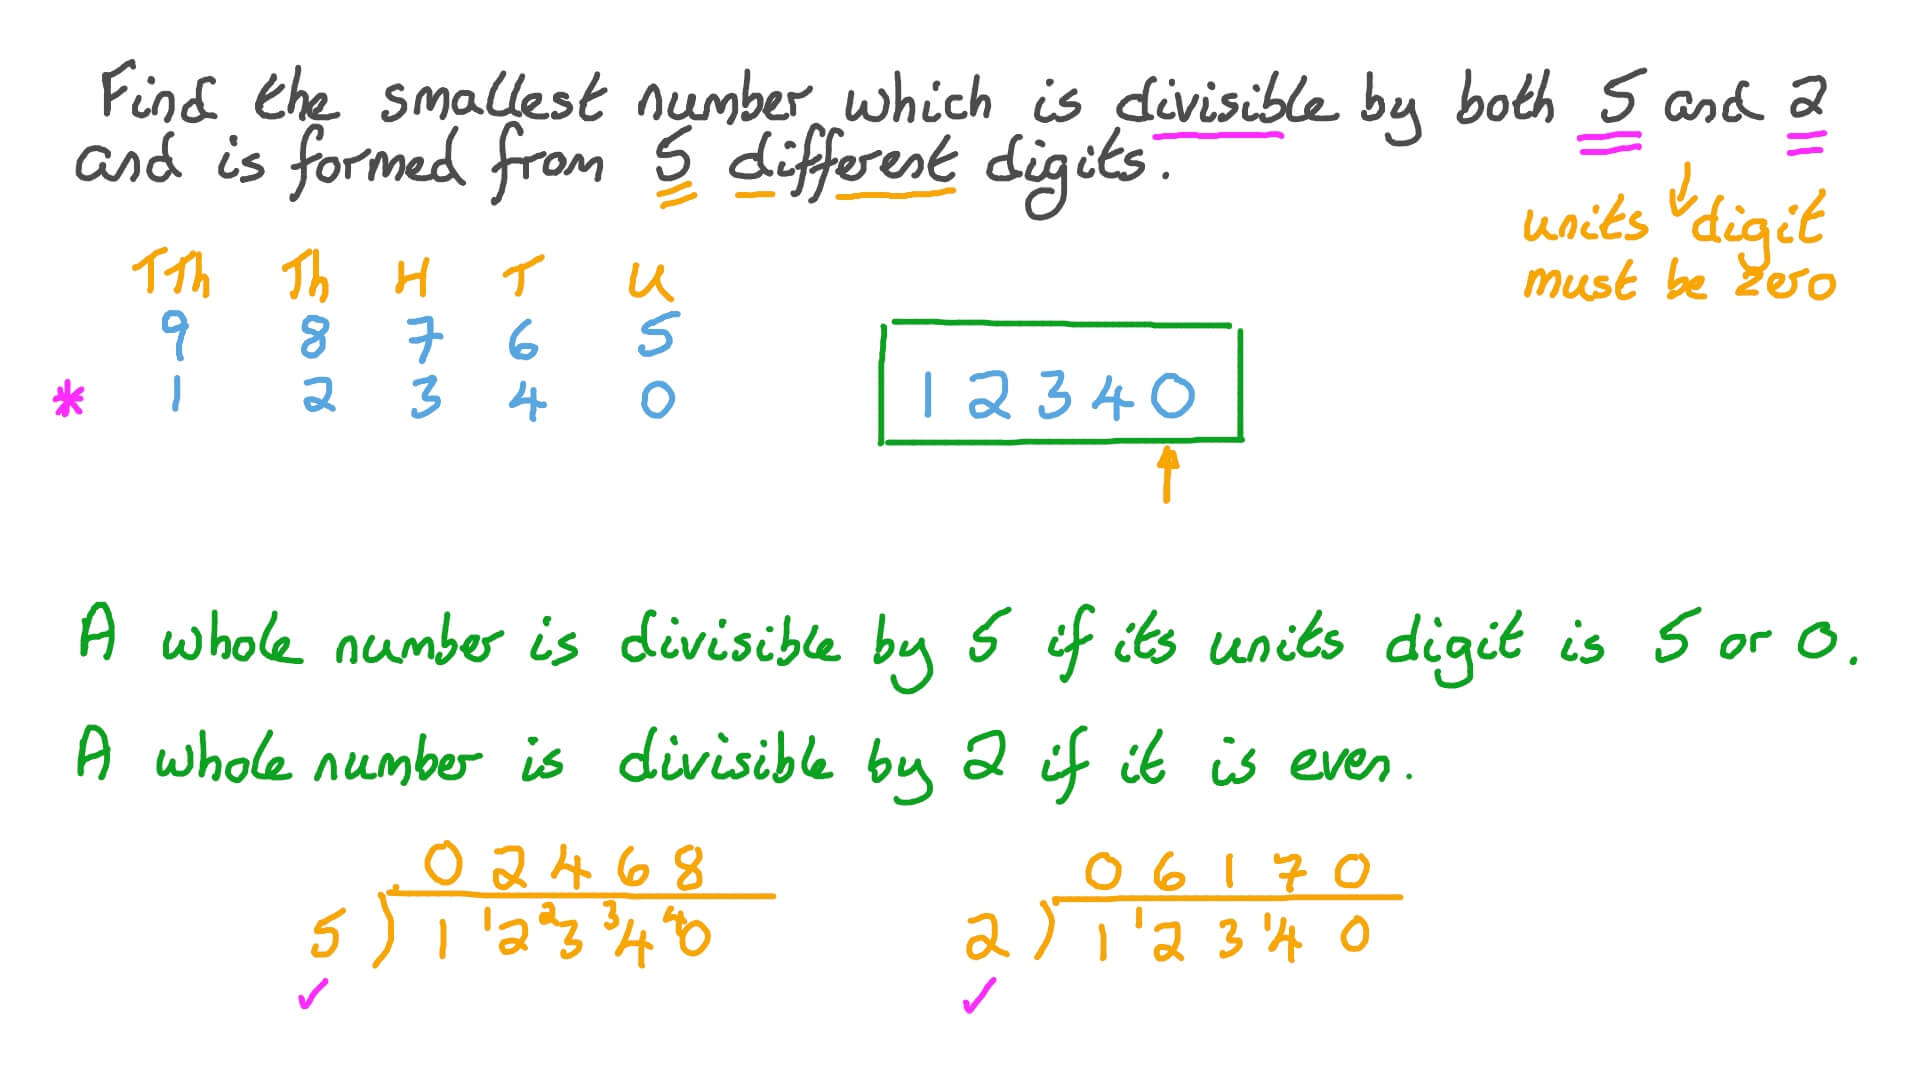 Find the smallest number which is divisible by both 5 and 2
and is formed from 5 different digits.
units digit
must be zero
TTh Th H T U
9 8 7 6 5
* 1 2 3 4 0
1 2 3 4 0
A whole number is divisible by 5 if its units digit is 5 or 0.
A whole number is divisible by 2 if it is even.
0 2 4 6 8
5 ) 1 ¹2 ²3 ³4 ⁴0
✓
0 6 1 7 0
2 ) 1 ¹2 3 ¹4 0
✓